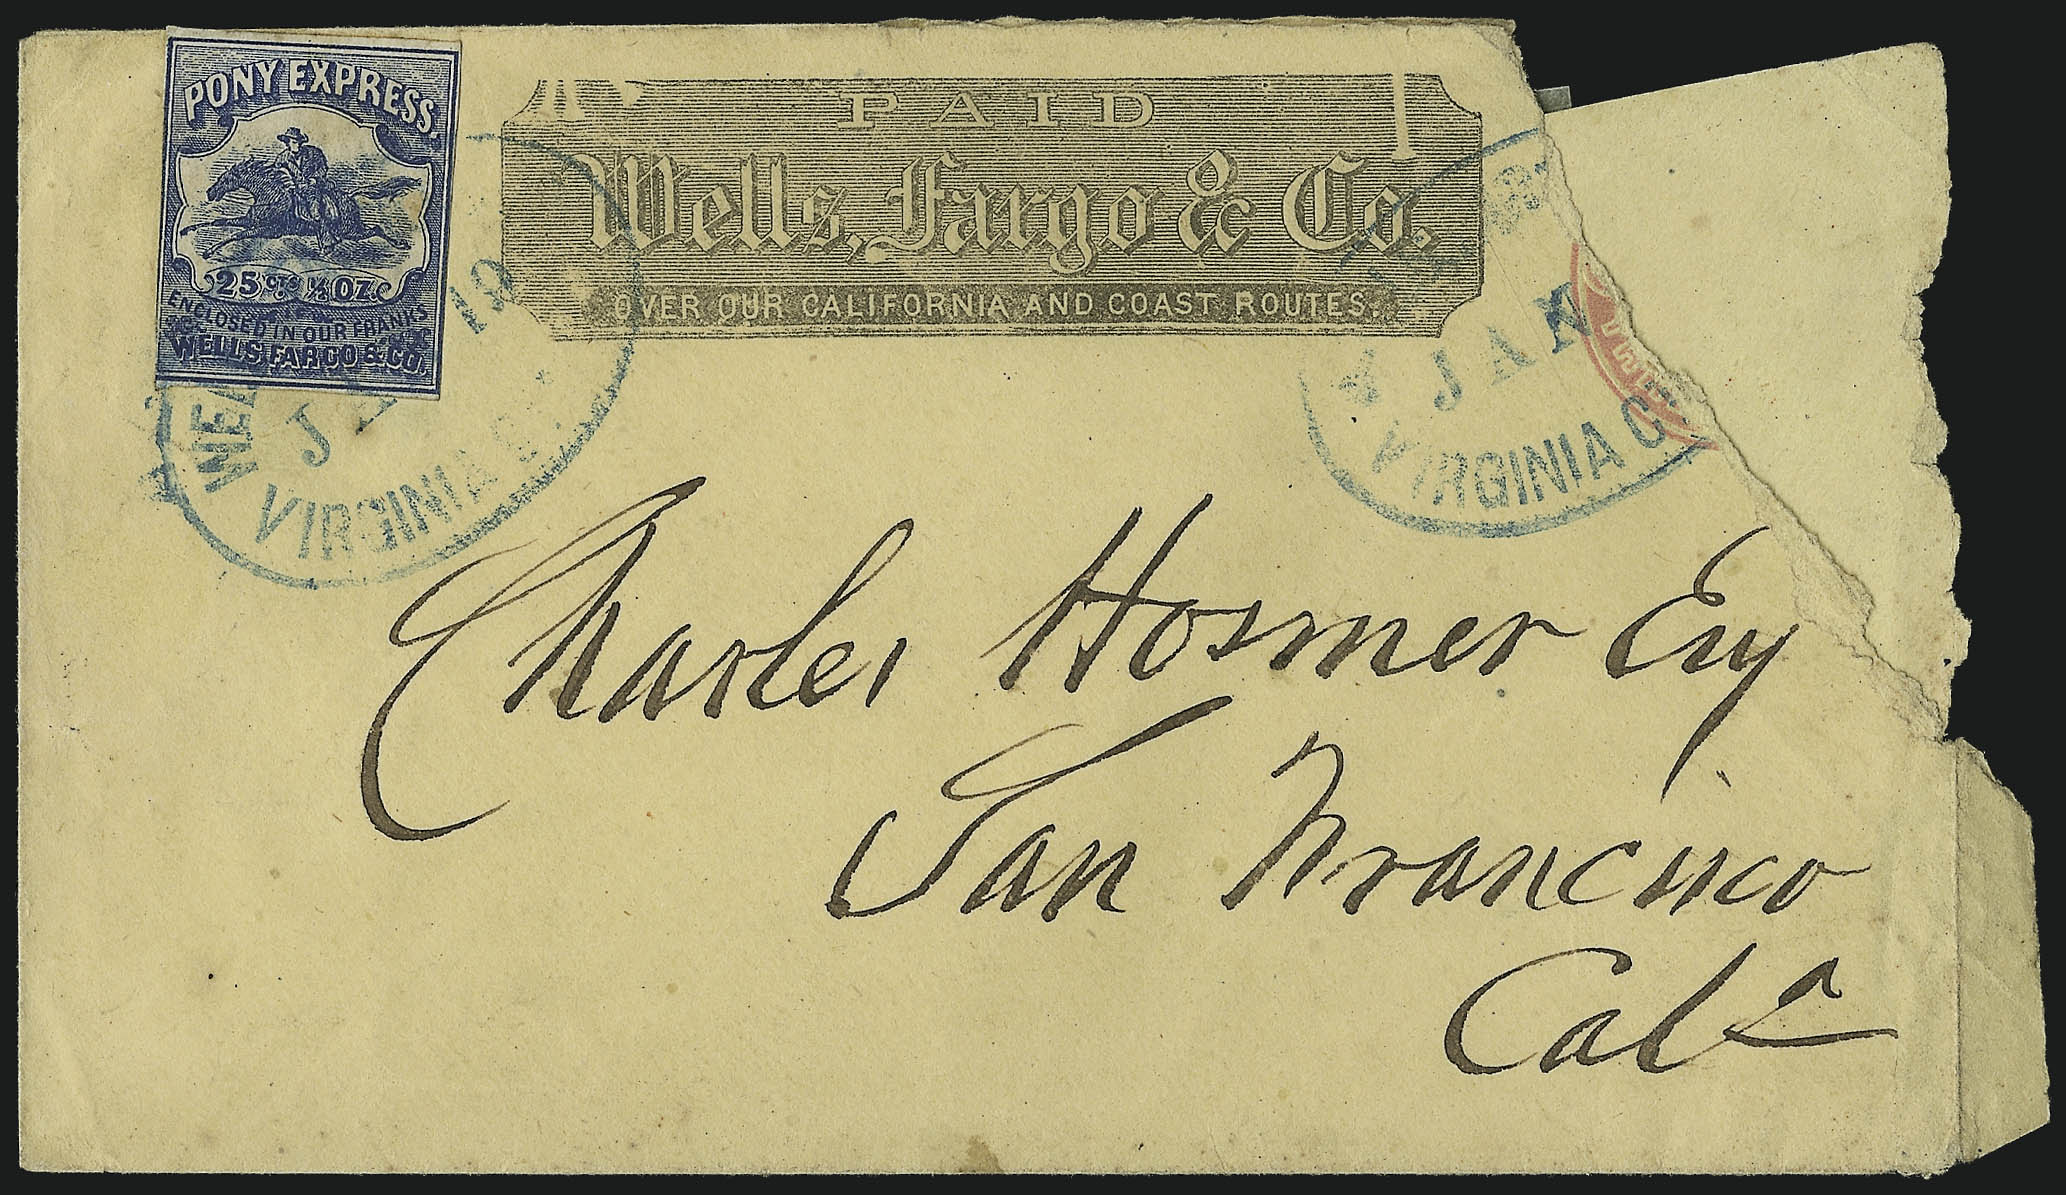 PONY EXPRESS.
25 CTS ½ OZ.
ENCLOSED IN OUR FRANKS
WELLS, FARGO & CO.
PAID
Wells, Fargo & Co.
OVER OUR CALIFORNIA AND COAST ROUTES.
WEL
19
VIRGINIA
JAN
VIRGINIA C
Charles Hosmer Esq
San Francisco
Cala